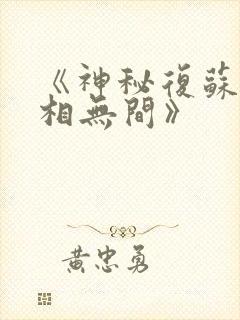 《神秘復蘇
相無間》
黃忠勇